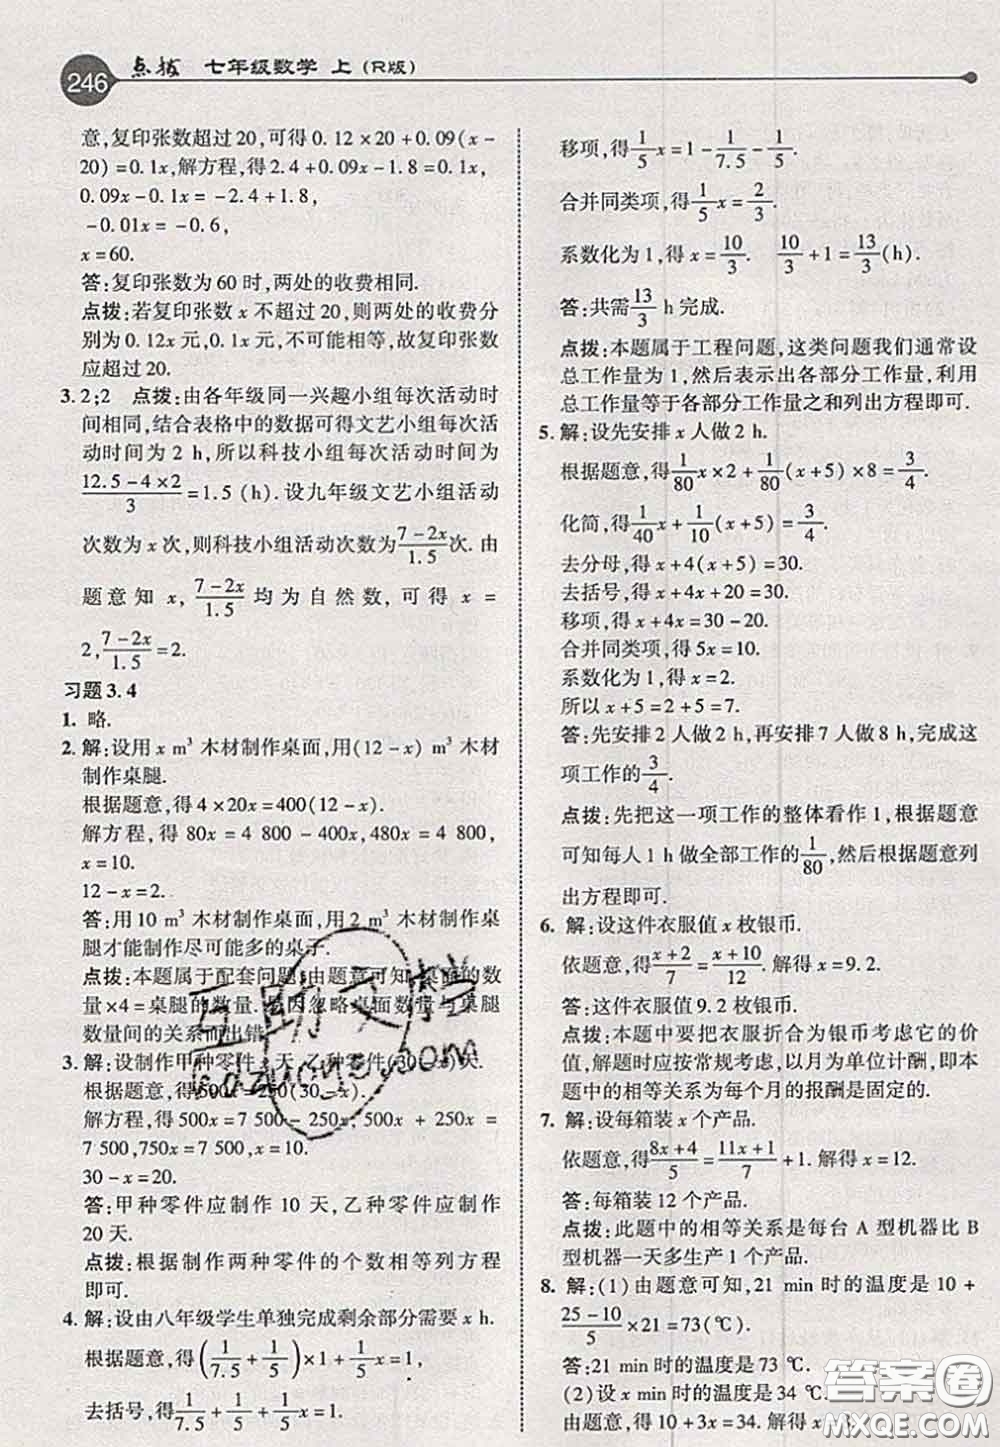 246 点拨 七年级数学 上（R版）
意,复印张数超过20,可得0.12×20+0.09(x-
20)=0.1x,解方程,得2.4+0.09x-1.8=0.1x,
0.09x-0.1x=-2.4+1.8,
-0.01x=-0.6,
x=60.
答:复印张数为60时,两处的收费相同.
点拨:若复印张数x不超过20,则两处的收费分
别为0.12x元,0.1x元,不可能相等,故复印张数
应超过20.
3. 2;2 点拨:由各年级同一兴趣小组每次活动时
间相同,结合表格中的数据可得文艺小组每次活
动时间为2 h,所以科技小组每次活动时间为
(12.5-4×2)/3=1.5(h).设九年级文艺小组活动
次数为x次,则科技小组活动次数为(7-2x)/1.5次.由
题意知x,(7-2x)/1.5均为自然数,可得x=
2,(7-2x)/1.5=2.
习题3.4
1. 略.
2. 解:设用x m³木材制作桌面,用(12-x) m³木材
制作桌腿.
根据题意,得4×20x=400(12-x).
解方程,得80x=4 800-400x,480x=4 800,
x=10.
12-x=2.
答:用10 m³木材制作桌面,用2 m³木材制作桌
腿才能制作尽可能多的桌子.
点拨:本题属于配套问题,由题意可知,桌面的数
量×4=桌腿的数量.易因忽略桌面数量与桌腿
数量间的关系而出错.
3. 解:设制作甲种零件x天,乙种零件(30-x)天.
根据题意,得500x=250(30-x).
解方程,得500x=7 500-250x,500x+250x=
7 500,750x=7 500,x=10.
30-x=20.
答:甲种零件应制作10天,乙种零件应制作
20天.
点拨:根据制作两种零件的个数相等列方程
即可.
4. 解:设由八年级学生单独完成剩余部分需要x h.
根据题意,得(1/7.5+1/5)×1+1/5x=1,
去括号,得1/7.5+1/5+1/5x=1.
移项,得1/5x=1-1/7.5-1/5.
合并同类项,得1/5x=2/3.
系数化为1,得x=10/3. 10/3+1=13/3(h).
答:共需13/3 h完成.
点拨:本题属于工程问题,这类问题我们通常设
总工作量为1,然后表示出各部分工作量,利用
总工作量等于各部分工作量之和列出方程即可.
5. 解:设先安排x人做2 h.
根据题意,得1/80x×2+1/80(x+5)×8=3/4.
化简,得1/40x+1/10(x+5)=3/4.
去分母,得x+4(x+5)=30.
去括号,得x+4x+20=30.
移项,得x+4x=30-20.
合并同类项,得5x=10.
系数化为1,得x=2.
所以x+5=2+5=7.
答:先安排2人做2 h,再安排7人做8 h,完成这
项工作的3/4.
点拨:先把这一项工作的整体看作1,根据题意
可知每人1 h做全部工作的1/80,然后根据题意列
出方程即可.
6. 解:设这件衣服值x枚银币.
依题意,得(x+2)/7=(x+10)/12. 解得x=9.2.
答:这件衣服值9.2枚银币.
点拨:本题中要把衣服折合为银币考虑它的价
值,解题时应按常规考虑,以月为单位计酬,即本
题中的相等关系为每个月的报酬是固定的.
7. 解:设每箱装x个产品.
依题意,得(8x+4)/5=(11x+1)/7+1. 解得x=12.
答:每箱装12个产品.
点拨:此题中的相等关系是每台A型机器比B
型机器一天多生产1个产品.
8. 解:(1)由题意可知,21 min时的温度是10+
(25-10)/5×21=73(℃).
答:21 min时的温度是73 ℃.
(2)设x min时的温度是34 ℃.
由题意,得10+3x=34. 解得x=8.
答案圈
MXQE.COM